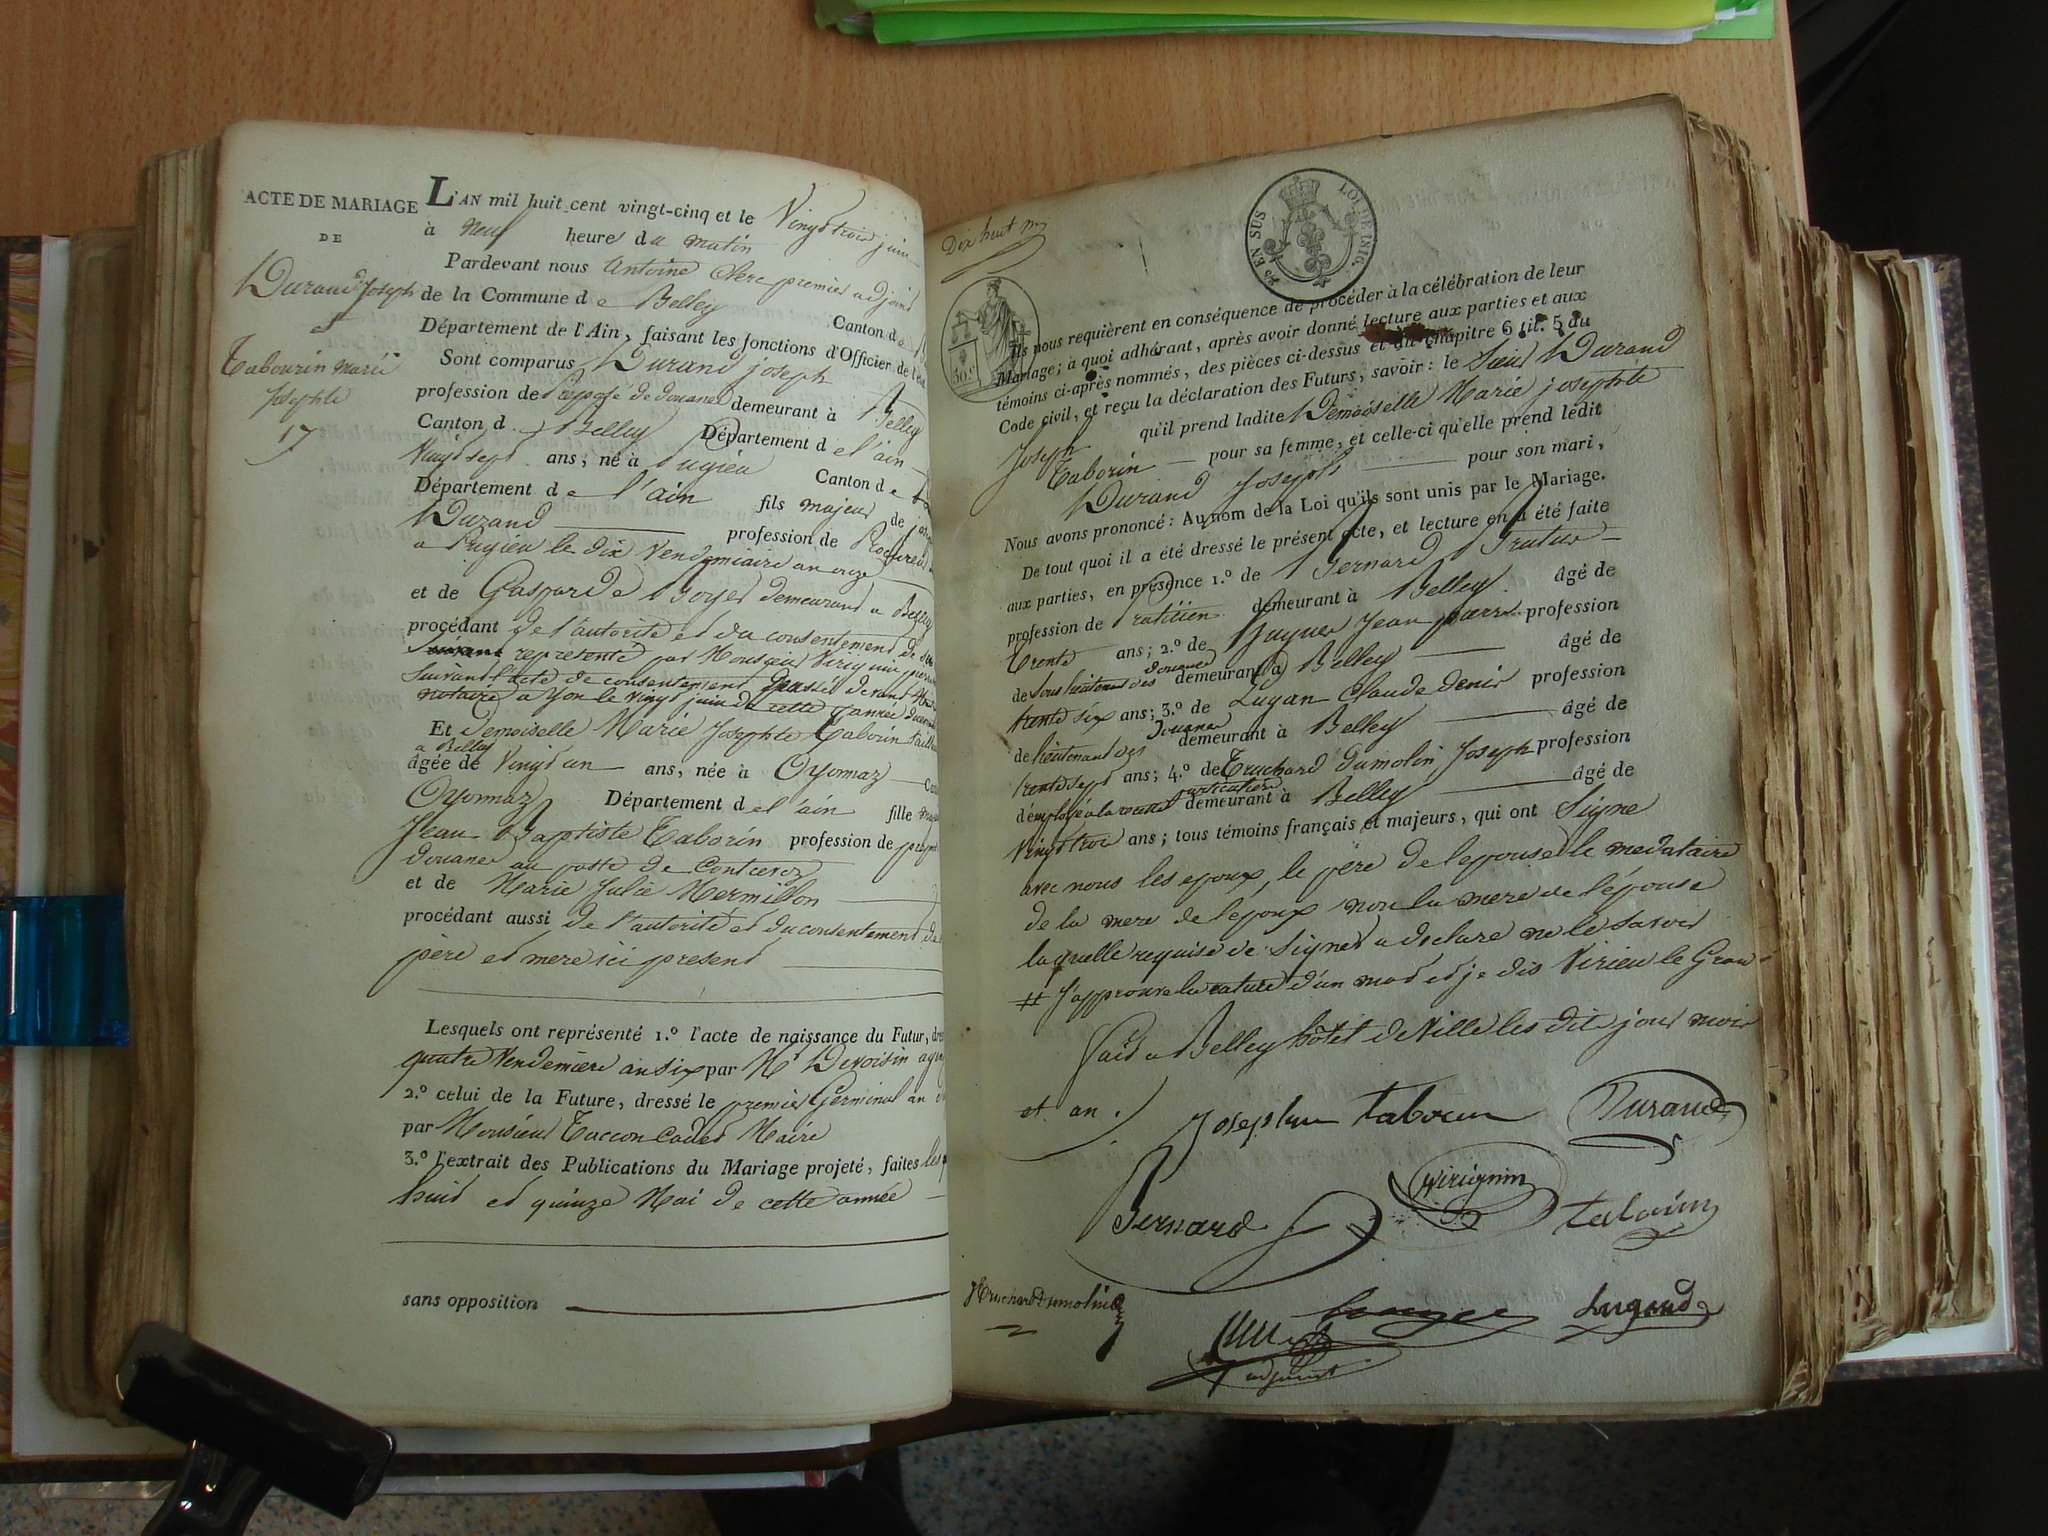 ACTE DE MARIAGE
DE
Durand Joseph
et
Tabourin marie
Josephte
17
L'AN mil huit cent vingt-cinq et le Vingt trois juin
à neuf heures du matin
Pardevant nous Antoine Clerc premier adjoint
de la Commune de Belley Canton de
Département de l'Ain, faisant les fonctions d'Officier de l'état
Sont comparus Durand joseph
profession de Preposé de douanes demeurant à Belley
Canton de Belley Département de l'ain
Vingt sept ans, né à Pugieu Canton de
Département de l'ain fils majeur de
Durand profession de
a Pugieu le dix Vendemiaire an onze
et de Gasparde Boyer demeurant a Belley
procédant de l'autorité et du consentement de
representé par Monsieur Virignin
suivant l'acte de consentement passé devant
notaire a yon le vingt juin de cette année
Et demoiselle Marie Josephte Taborin
a Belley
âgée de Vingt un ans, née à Oyonnaz
Oyonnaz Département de l'ain fille
Jean Baptiste Taborin profession de
douanes au poste de
et de Marie Julie Mermillon
procédant aussi de l'autorité et du consentement de
père et mere ici present
Lesquels ont représenté 1.º l'acte de naissance du Futur,
quatre Vendemiere an six par Mr Devoisin
2.º celui de la Future, dressé le premier Germinal an
par Monsieur Tacon Cadet Maire
3.º l'extrait des Publications du Mariage projeté, faites les
huit et quinze Mai de cette année
sans opposition
Dix huit
EN SUS
LOI DE 1816.
Ils nous requièrent en conséquence de procéder à la célébration de leur
Mariage; à quoi adhérant, après avoir donné lecture aux parties et aux
témoins ci-après nommés, des pièces ci-dessus et du chapitre 6 tit. 5 du
Code civil, et reçu la déclaration des Futurs, savoir: le Sieur Durand
Joseph qu'il prend ladite Demoiselle Marie josephte
Taborin pour sa femme, et celle-ci qu'elle prend ledit
Durand Joseph pour son mari,
Nous avons prononcé: Au nom de la Loi qu'ils sont unis par le Mariage.
De tout quoi il a été dressé le présent acte, et lecture en a été faite
aux parties, en présence 1.º de Bernard
profession de demeurant à Belley âgé de
trente ans; 2.º de Jean pierre profession
de Sous lieutenant des douanes demeurant à Belley âgé de
trente six ans; 3.º de Claude denis profession
de lieutenant des Douanes demeurant à Belley âgé de
trente sept ans; 4.º de Truchard dumolin Joseph profession
d'employé a la recette particuliere demeurant à Belley âgé de
vingt trois ans; tous témoins français et majeurs, qui ont Signé
avec nous les epoux, le père de l'epouse le mandataire
de la mere de l'epoux non la mere de l'épouse
laquelle requise de signer a declare ne le savoir
# J'approuve la rature d'un mot et je dis Virieu le Grand
Fait a Belley hôtel de Ville les dits jour mois
et an.
Josephte tabourin Durand
Bernard Virignin tabourin
Truchard dumolin
Lugand
adjoint